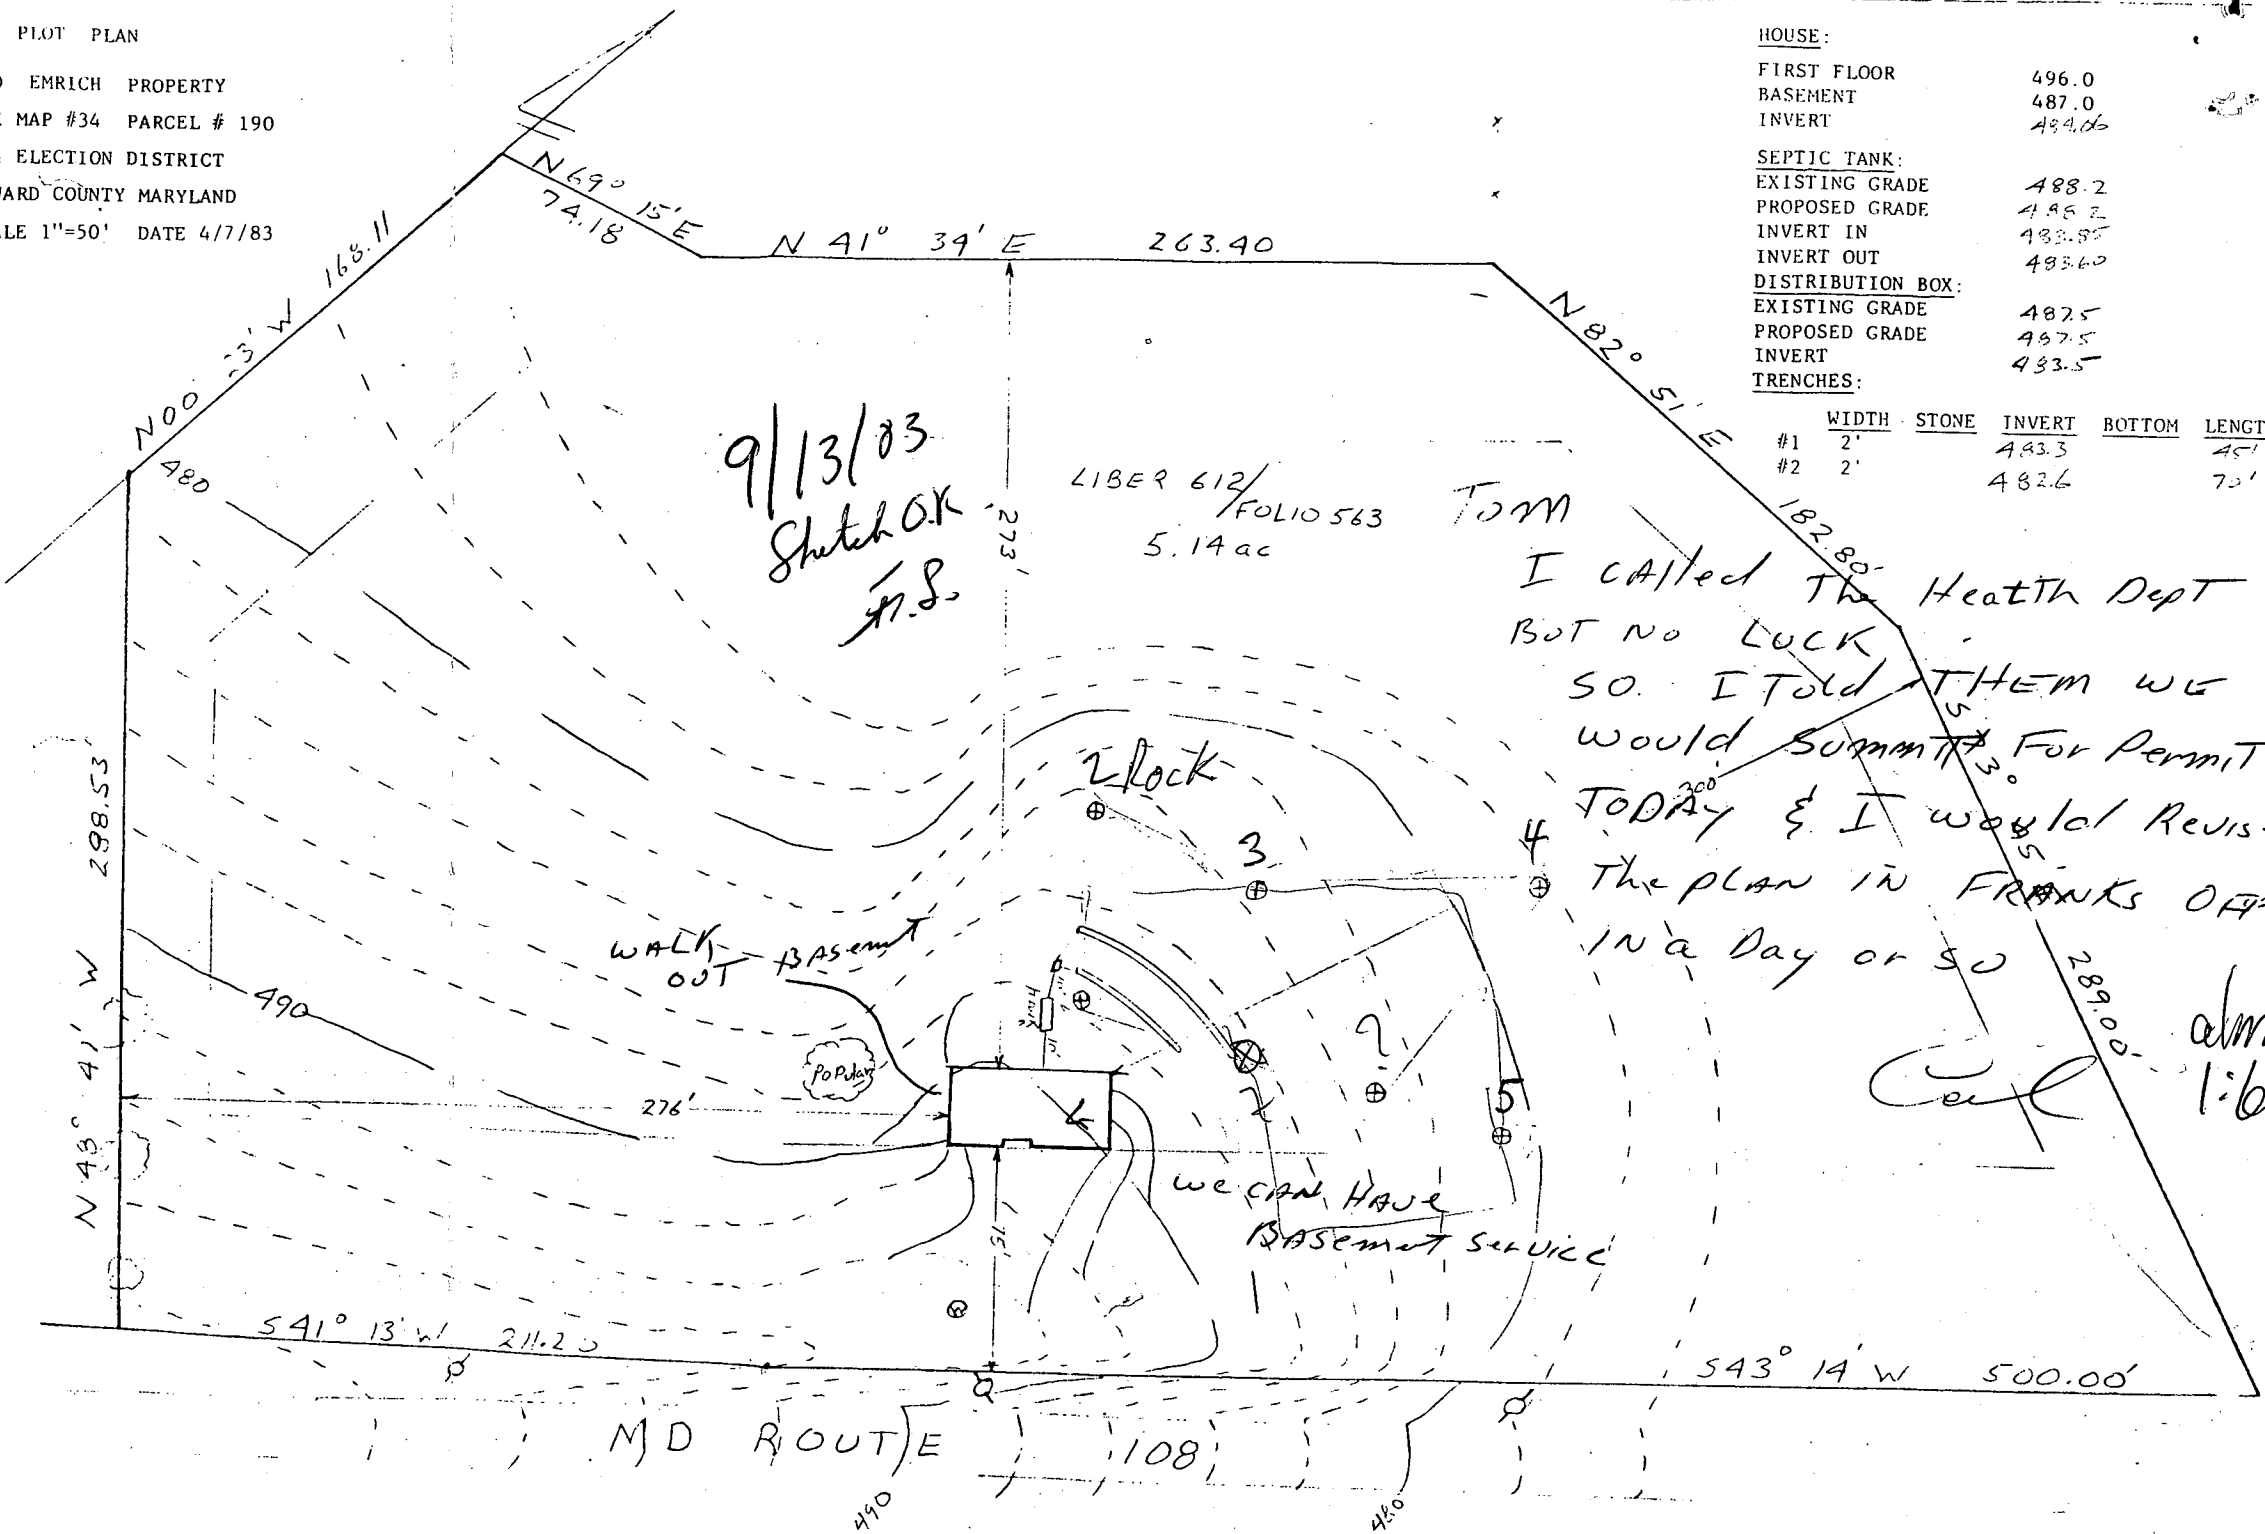 PLOT PLAN
EMRICH PROPERTY
MAP #34 PARCEL # 190
ELECTION DISTRICT
COUNTY MARYLAND
1"=50' DATE 4/7/83
HOUSE:
FIRST FLOOR 496.0
BASEMENT 487.0
INVERT 484.06
SEPTIC TANK:
EXISTING GRADE 488.2
PROPOSED GRADE 488.2
INVERT IN 483.85
INVERT OUT 483.60
DISTRIBUTION BOX:
EXISTING GRADE 487.5
PROPOSED GRADE 487.5
INVERT 483.5
TRENCHES:
WIDTH STONE INVERT BOTTOM
#1 2' 483.3 45'
#2 2' 482.6 70'
N 69° 15' E
74.18
N 41° 34' E 263.40
168.11
N 82° 51' E
182.80
289.00
480
9/13/83
Sketch O.K.
273'
LIBER 612/
FOLIO 563
5.14 ac
Tom
I CAlled The Heatth Dept
BUT No LUCK
SO. I Told THEM WE
would Summit For Permit
TODAy & I would
The PLAN IN FRANKS
IN a Day or SO
Carl
300'
2 Rock
3
4
WALK
OUT BASemnt
490
Popular
276'
10'
?
2
5
298.53'
N 48° 41' W
we CAN HAVe
BASement Service
75'
W
1
S 41° 13' W 211.20
S 43° 14' W 500.00'
MD ROUTE 108
490
480